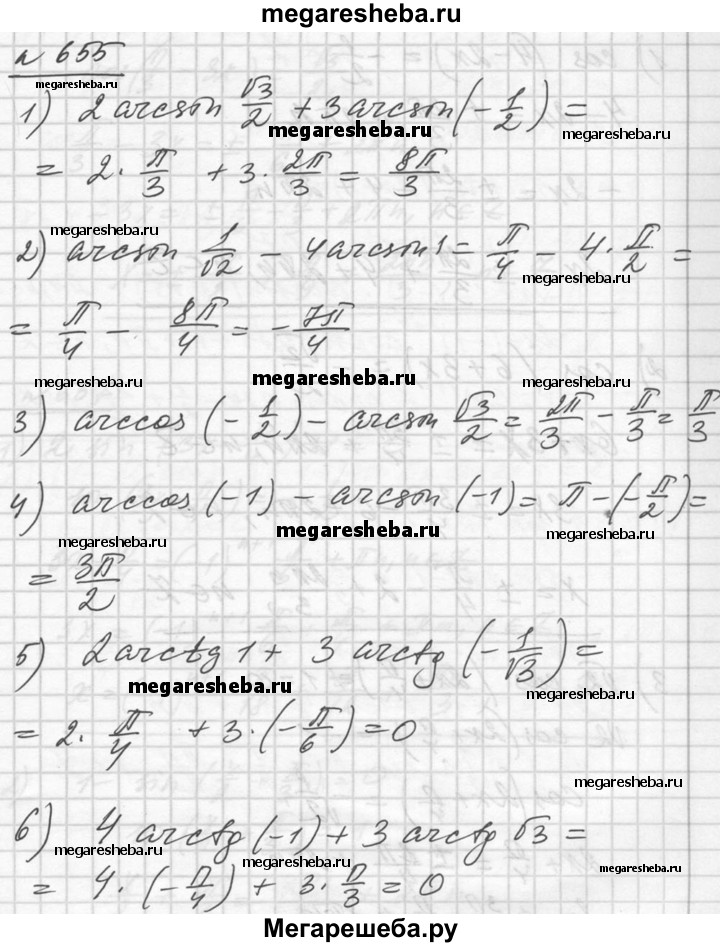 megaresheba.ru
№ 655
megaresheba.ru
1) 2 arcsin √3/2 + 3 arcsin (-1/2) =
megaresheba.ru megaresheba.ru
= 2 · π/3 + 3 · 2π/3 = 8π/3
megaresheba.ru
2) arcsin 1/√2 - 4 arcsin 1 = π/4 - 4 · π/2 =
megaresheba.ru
= π/4 - 8π/4 = -7π/4
megaresheba.ru megaresheba.ru megaresheba.ru
3) arccos (-1/2) - arcsin √3/2 = 2π/3 - π/3 = π/3
4) arccos (-1) - arcsin (-1) = π - (-π/2) =
megaresheba.ru megaresheba.ru megaresheba.ru
= 3π/2
5) 2 arctg 1 + 3 arctg (-1/√3) =
megaresheba.ru megaresheba.ru
= 2 · π/4 + 3 · (-π/6) = 0
megaresheba.ru
6) 4 arctg (-1) + 3 arctg √3 =
megaresheba.ru megaresheba.ru megaresheba.ru
= 4 · (-π/4) + 3 · π/3 = 0
Мегарешеба.ру